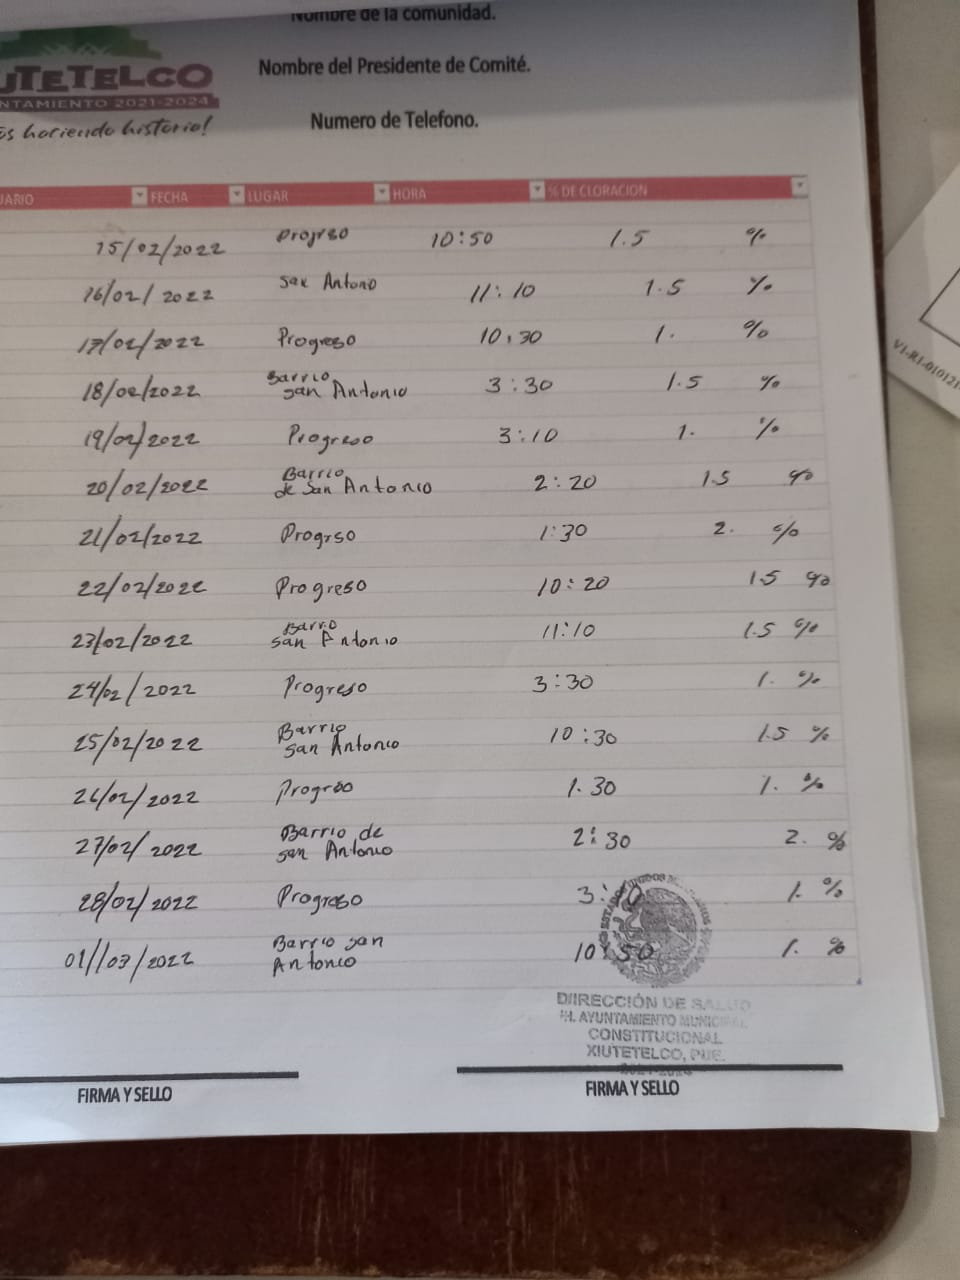 Nombre de la comunidad.
Nombre del Presidente de Comité.
Numero de Telefono.
UTETELCO
NTAMIENTO 2021-2024
haciendo historia!
UARIO FECHA LUGAR HORA % DE CLORACION
15/02/2022 Progrso 10:50 1.5 %
16/02/2022 san Antono 11:10 1.5 %
17/02/2022 Progreso 10:30 1. %
18/02/2022 Barrio san Antonio 3:30 1.5 %
19/02/2022 Progreso 3:10 1. %
20/02/2022 Barrio de San Antonio 2:20 1.5 %
21/02/2022 Progrso 1:30 2. %
22/02/2022 Progreso 10:20 1.5 %
23/02/2022 Barrio san Antonio 11:10 1.5 %
24/02/2022 Progreso 3:30 1. %
25/02/2022 Barrio san Antonio 10:30 1.5 %
26/02/2022 Progrso 1.30 1. %
27/02/2022 Barrio de san Antonio 2:30 2. %
28/02/2022 Progreso 1. %
01/03/2022 Barrio san Antonio 10:50 1. %
DIRECCIÓN DE SALUD
H. AYUNTAMIENTO MUNICIPAL
CONSTITUCIONAL
XIUTETELCO, PUE.
2021-2024
FIRMA Y SELLO FIRMA Y SELLO
V1-R1-010121